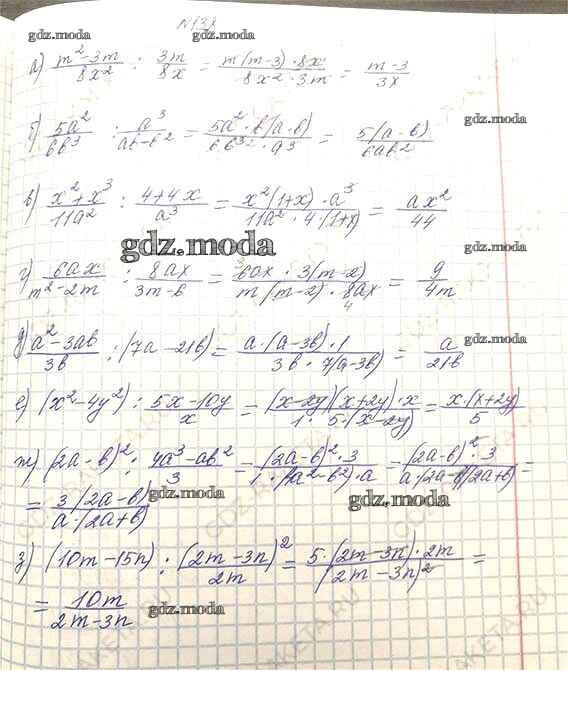 №138
gdz.moda gdz.moda gdz.moda
а) (m²-3m)/(8x²) : 3m/8x = (m(m-3)·8x)/(8x²·3m) = (m-3)/(3x)
б) 5a²/6b³ : a³/(ab-b²) = (5a²·b(a-b))/(6b³·a³) = 5(a-b)/(6ab²)
gdz.moda gdz.moda gdz.moda
в) (x²+x³)/(11a²) : (4+4x)/a³ = (x²(1+x)·a³)/(11a²·4(1+x)) = ax²/44
gdz.moda gdz.moda
г) 6ax/(m²-2m) : 8ax/(3m-6) = (6ax·3(m-2))/(m(m-2)·8ax) = 9/4m
д) (a²-3ab)/(3b) : (7a-21b) = (a·(a-3b)·1)/(3b·7(a-3b)) = a/21b
gdz.moda gdz.moda gdz.moda
е) (x²-4y²) : (5x-10y)/x = ((x-2y)(x+2y)·x)/(1·5·(x-2y)) = x·(x+2y)/5
ж) (2a-b)² : (4a³-ab²)/3 = ((2a-b)²·3)/(1·(4a²-b²)·a) = ((2a-b)²·3)/(a·(2a-b)(2a+b)) =
= 3(2a-b)/(a·(2a+b))
gdz.moda gdz.moda gdz.moda
з) (10m-15n) : (2m-3n)²/2m = (5·(2m-3n)·2m)/(2m-3n)² =
= 10m/(2m-3n)
gdz.moda gdz.moda gdz.moda